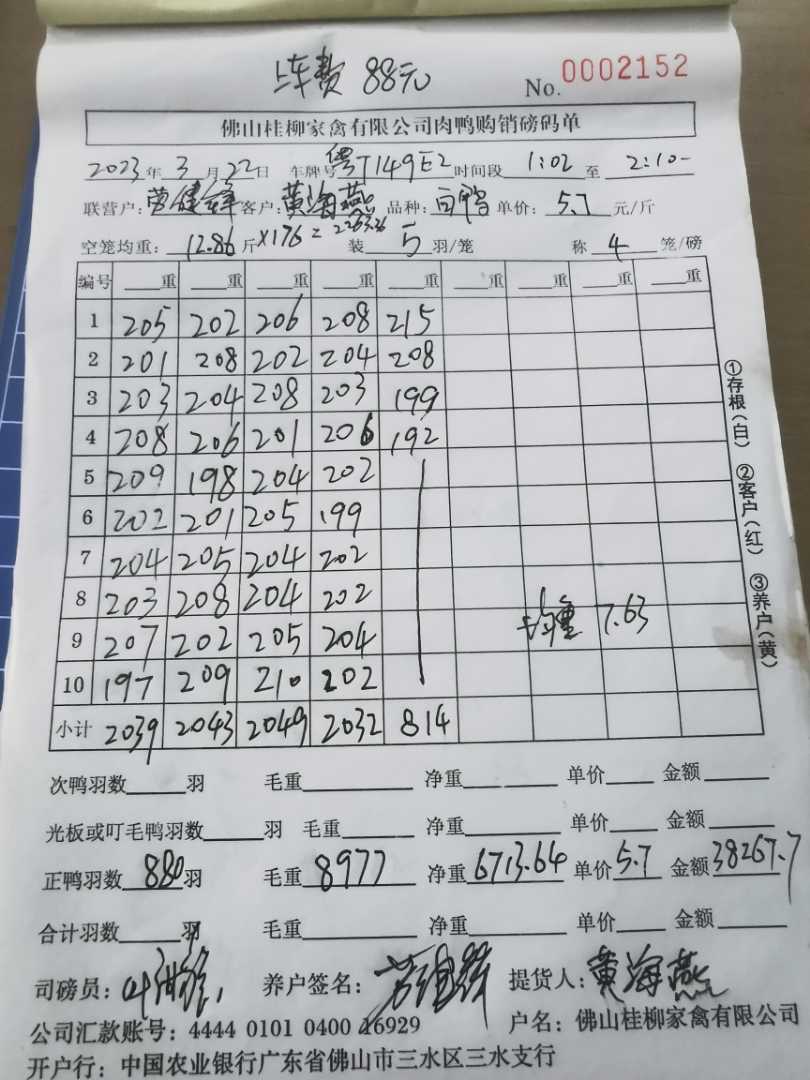 上车费 88元
No. 0002152
佛山桂柳家禽有限公司肉鸭购销磅码单
2023年3月22日 车牌号粤T149E2时间段 1:02 至 2:10
联营户: 健锋 客户: 黄海燕 品种: 白鸭 单价: 5.7 元/斤
空笼均重: 12.86斤×176=2263.36 装 5 羽/笼 称 4 笼/磅
编号 重 重 重 重 重 重 重 重
1 205 202 206 208 215
2 201 208 202 204 208
3 203 204 208 203 199
4 208 206 201 206 192
5 209 198 204 202
6 202 201 205 199
7 204 205 204 202
8 203 208 204 202
9 207 202 205 204 均重 7.63
10 197 209 210 202
小计 2039 2043 2049 2032 814
①存根(白) ②客户(红) ③养户(黄)
次鸭羽数 羽 毛重 净重 单价 金额
光板或叮毛鸭羽数 羽 毛重 净重 单价 金额
正鸭羽数 880 羽 毛重 8977 净重 6713.64 单价 5.7 金额 38267.7
合计羽数 羽 毛重 净重 单价 金额
司磅员: 养户签名: 提货人: 黄海燕
公司汇款账号: 4444 0101 0400 16929 户名: 佛山桂柳家禽有限公司
开户行: 中国农业银行广东省佛山市三水区三水支行